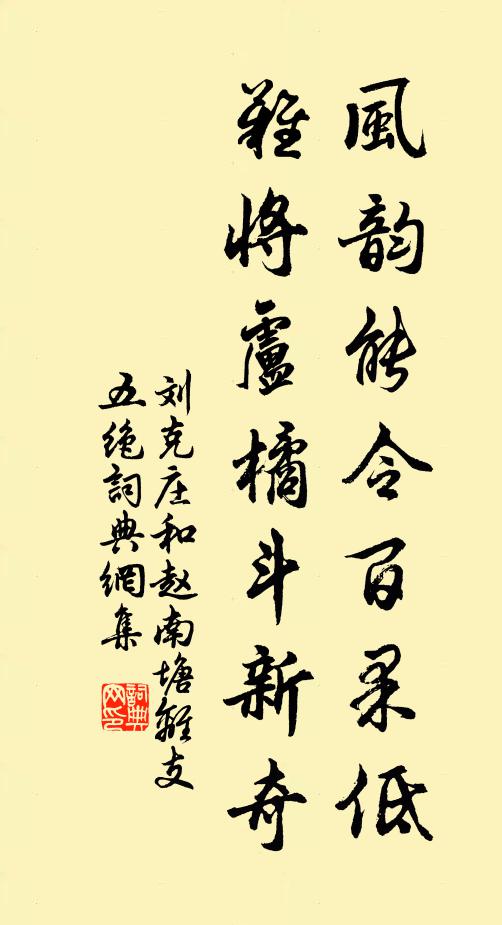 風韵能令百果低
難將盧橘斗新奇
刘克庄和赵南塘離支
五绝詞典網集
詞典
网印